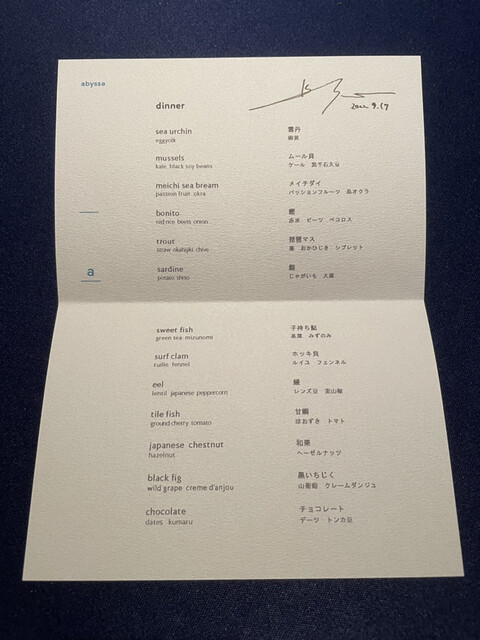 abysse
2022 9.17
dinner
sea urchin 雲丹
eggyolk 卵黄
mussels ムール貝
kale black soy beans ケール 黒千石大豆
meichi sea bream メイチダイ
passion fruit okra パッションフルーツ 島オクラ
bonito 鰹
red rice beets onion 赤米 ビーツ ペコロス
trout 琵琶マス
straw okahijiki chive 藁 おかひじき シブレット
a
sardine 鰯
potato shiso じゃがいも 大葉
sweet fish 子持ち鮎
green tea mizunomi みずのみ
surf clam ホッキ貝
ruille fennel ルイユ フェンネル
eel 鰻
lentil japanese peppercorn レンズ豆 実山椒
tile fish 甘鯛
ground cherry tomato ほおずき トマト
japanese chestnut 和栗
hazelnut ヘーゼルナッツ
black fig 黒いちじく
wild grape creme d'anjou 山葡萄 クレームダンジュ
chocolate チョコレート
dates kumaru デーツ トンカ豆